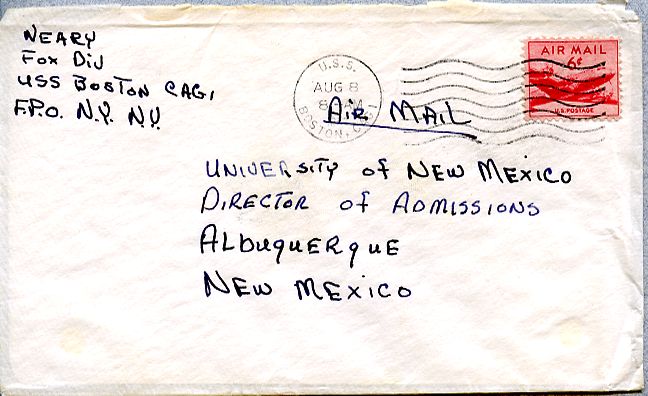 NEARY
FOX DIV
USS BOSTON CAG1
F.P.O. N.Y. N.Y.
U.S.S.
AUG 8
BOSTON, CAG 1
AIR MAIL
6¢
U.S. POSTAGE
AIR MAIL
UNIVERSITY of NEW MEXICO
DIRECTOR of ADMISSIONS
ALBUQUERQUE
NEW MEXICO